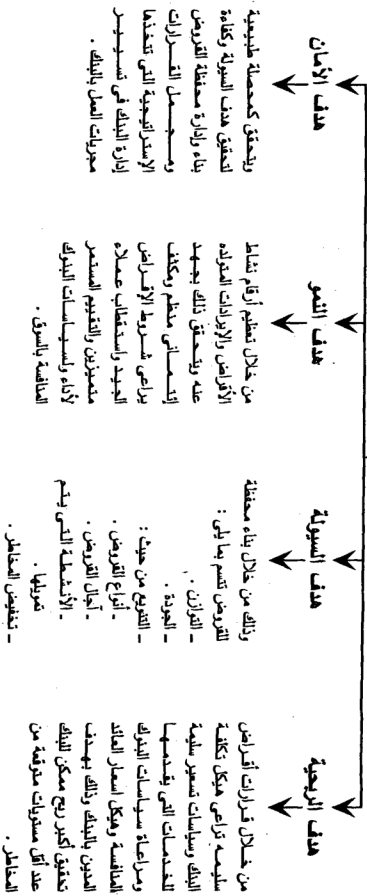 هدف الربحية
من خلال قرارات أقراض
سليمه تراعى هيكل تكلفة
البنك وسياسات تسعير سليمة
للخدمات التى يقدمها
ومراعاة سياسات البنوك
المنافسة وهيكل اسعار العائد
المدين بالبنك وذلك بهدف
تحقيق أكبر ربح ممكن للبنك
عند أقل مستويات متوقعة من
المخاطر .
هدف السيولة
وذلك من خلال بناء محفظة
للقروض تتسم بما يلى :
ـ التوازن .
ـ الجودة .
ـ التنويع من حيث :
ـ أنواع القروض .
ـ آجال القروض .
ـ الأنشطة التى يتم
تمويلها .
ـ تخفيض المخاطر .
هدف النمو
من خلال تعظيم أرقام نشاط
الأقراض والإيرادات المتولده
عنه ويتحقق ذلك بجهد
إئتمانى منظم ومكثف
يراعى شروط الإقراض
الجيد واستقطاب عملاء
متميزين والتقييم المستمر
لأداء ولسياسات البنوك
المنافسة بالسوق .
هدف الأمان
ويتحقق كمحصلة طبيعية
لتحقيق هدف السيولة وكفاءة
بناء وإدارة محفظة القروض
ومجمل القرارات
الإستراتيجية التى تتخذها
إدارة البنك فى تسيير
مجريات العمل بالبنك .